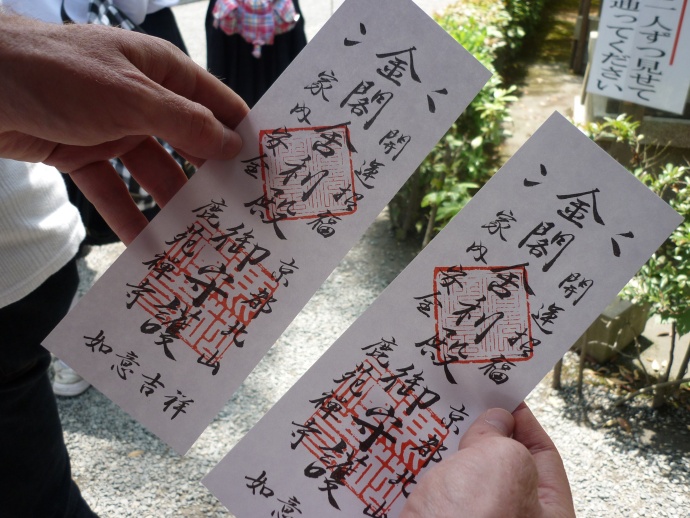 開運招福
京都北山
金閣舎利殿
御守護
家内安全
鹿苑禅寺
如意吉祥
開運招福
京都北
金閣舎利殿
御守護
家内安全
鹿苑禅寺
如意
人ずつ見せて
通ってください